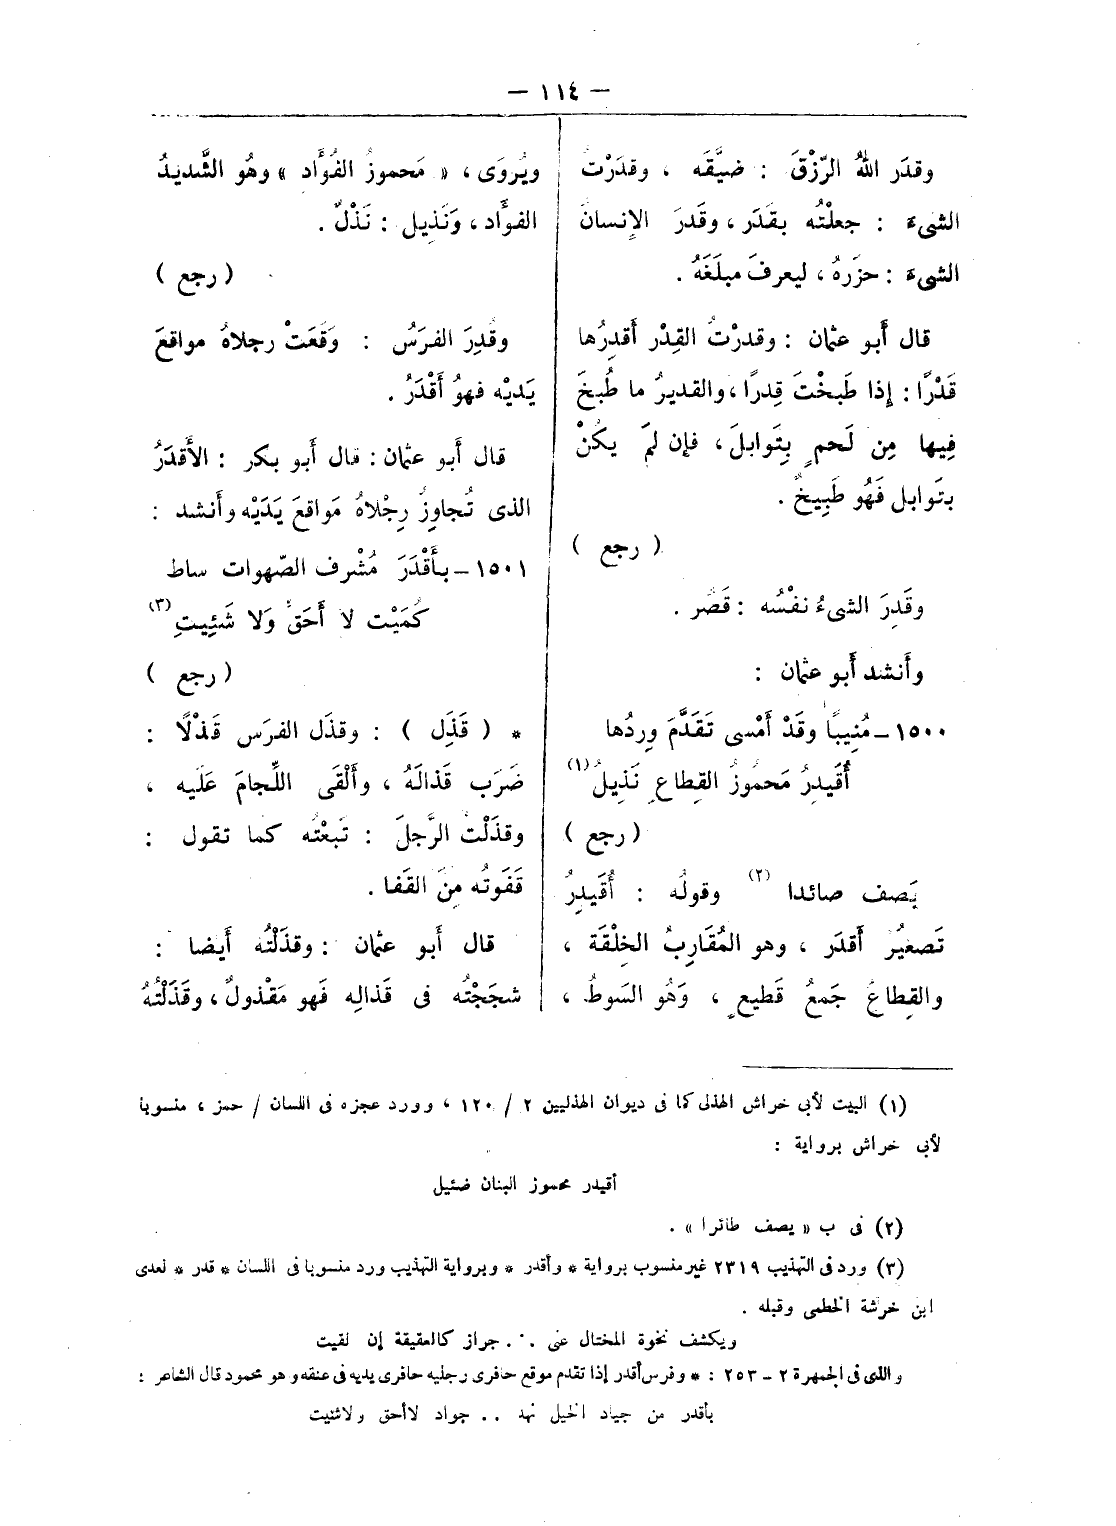 – ١١٤ –
وقدَر اللهُ الرّزْقَ : ضيَّقَه ، وقدَرْتُ
الشىء : جعلْتُه بقَدَر ، وقَدرَ الإنسانُ
الشىءَ : حزَرهُ ، ليعرفَ مبلَغَهُ .
قال أَبو عثمان : وقدرْتُ القِدْر أَقدِرُها
قَدْرًا : إذا طَبخْتَ قِدرًا ، والقديرُ ما طُبخَ
فِيها مِن لَحمٍ بِتَوابلَ ، فإن لمَ يكُنْ
بتَوابل فَهُو طَبِيخٌ .
( رجع )
وقَدِرَ الشىءُ نفْسُه : قَصُر .
وأَنشد أَبو عثمان :
١٥٠٠ – مُنِيبًا وقَدْ أَمْسى تَقَدَّمَ وِردُها
أُقَيدِرُ مَحموزُ القِطاعِ نَذِيلُ (١)
( رجع )
يَصف صائدا (٢) وقولُه : أُقَيدِرُ
تَصغيُر أَقدَر ، وهو المُقَارِبُ الخِلْقَة ،
والقِطاعُ جَمعُ قَطيعٍ ، وَهُو السَوطُ ،
ويُروَى ، « مَحموزُ الفُؤَاد » وهُو الشَّديدُ
الفؤَاد ، وَنَذِيل : نَذْلٌ .
( رجع )
وقُدِرَ الفرَسُ : وَقَعَتْ رجلاهُ مواقعَ
يَديْه فهوُ أَقْدَرُ .
قال أَبو عثمان : قال أَبو بكر : الأَقدَرُ
الذى تُجاوِزُ رِجْلاهُ مَواقعَ يَدَيْه وأَنشد :
١٥٠١ – بأَقْدَرَ مُشْرف الصّهوات ساط
كُمَيْت لا أَحَقَّ وَلا شَئِيتِ (٣)
( رجع )
* ( قَذَِل ) : وقذَل الفرَس قَذْلًا :
ضَرَب قَذالَهُ ، وأَلْقَى اللِّجامَ عَلَيه ،
وقذَلْتُ الرَّجلَ : تَبعْتُه كما تقول :
قَفَوتُه مِنَ القَفا .
قال أَبو عثمان : وقذَلْتُه أَيضا :
شجَجْتُه فى قَذالِه فَهو مَقْذولٌ ، وقَذَلْتُهُ
(١) البيت لأبى خراش الهذلى كما فى ديوان الهذليين ٢ / ١٢٠ ، وورد عجزه فى اللسان / حمز ، منسوبا
لأبى خراش برواية :
أقيدر محموز البنان ضئيل
(٢) فى ب « يصف طائرا » .
(٣) ورد فى التهذيب ٢٣١٩ غير منسوب برواية * وأقدر * وبرواية التهذيب ورد منسوبا فى اللسان * قدر * لعدى
ابن خرشة الخطمى وقبله .
ويكشف نخوة المختال عنى .˙. جراز كالعقيقة إن لقيت
والذى فى الجمهرة ٢ – ٢٥٣ : * وفرس أقدر إذا تقدم موقع حافرى رجليه حافرى يديه فى عنقه وهو محمود قال الشاعر :
بأقدر من جياد الخيل نهد .. جواد لاأحق ولاشئيت